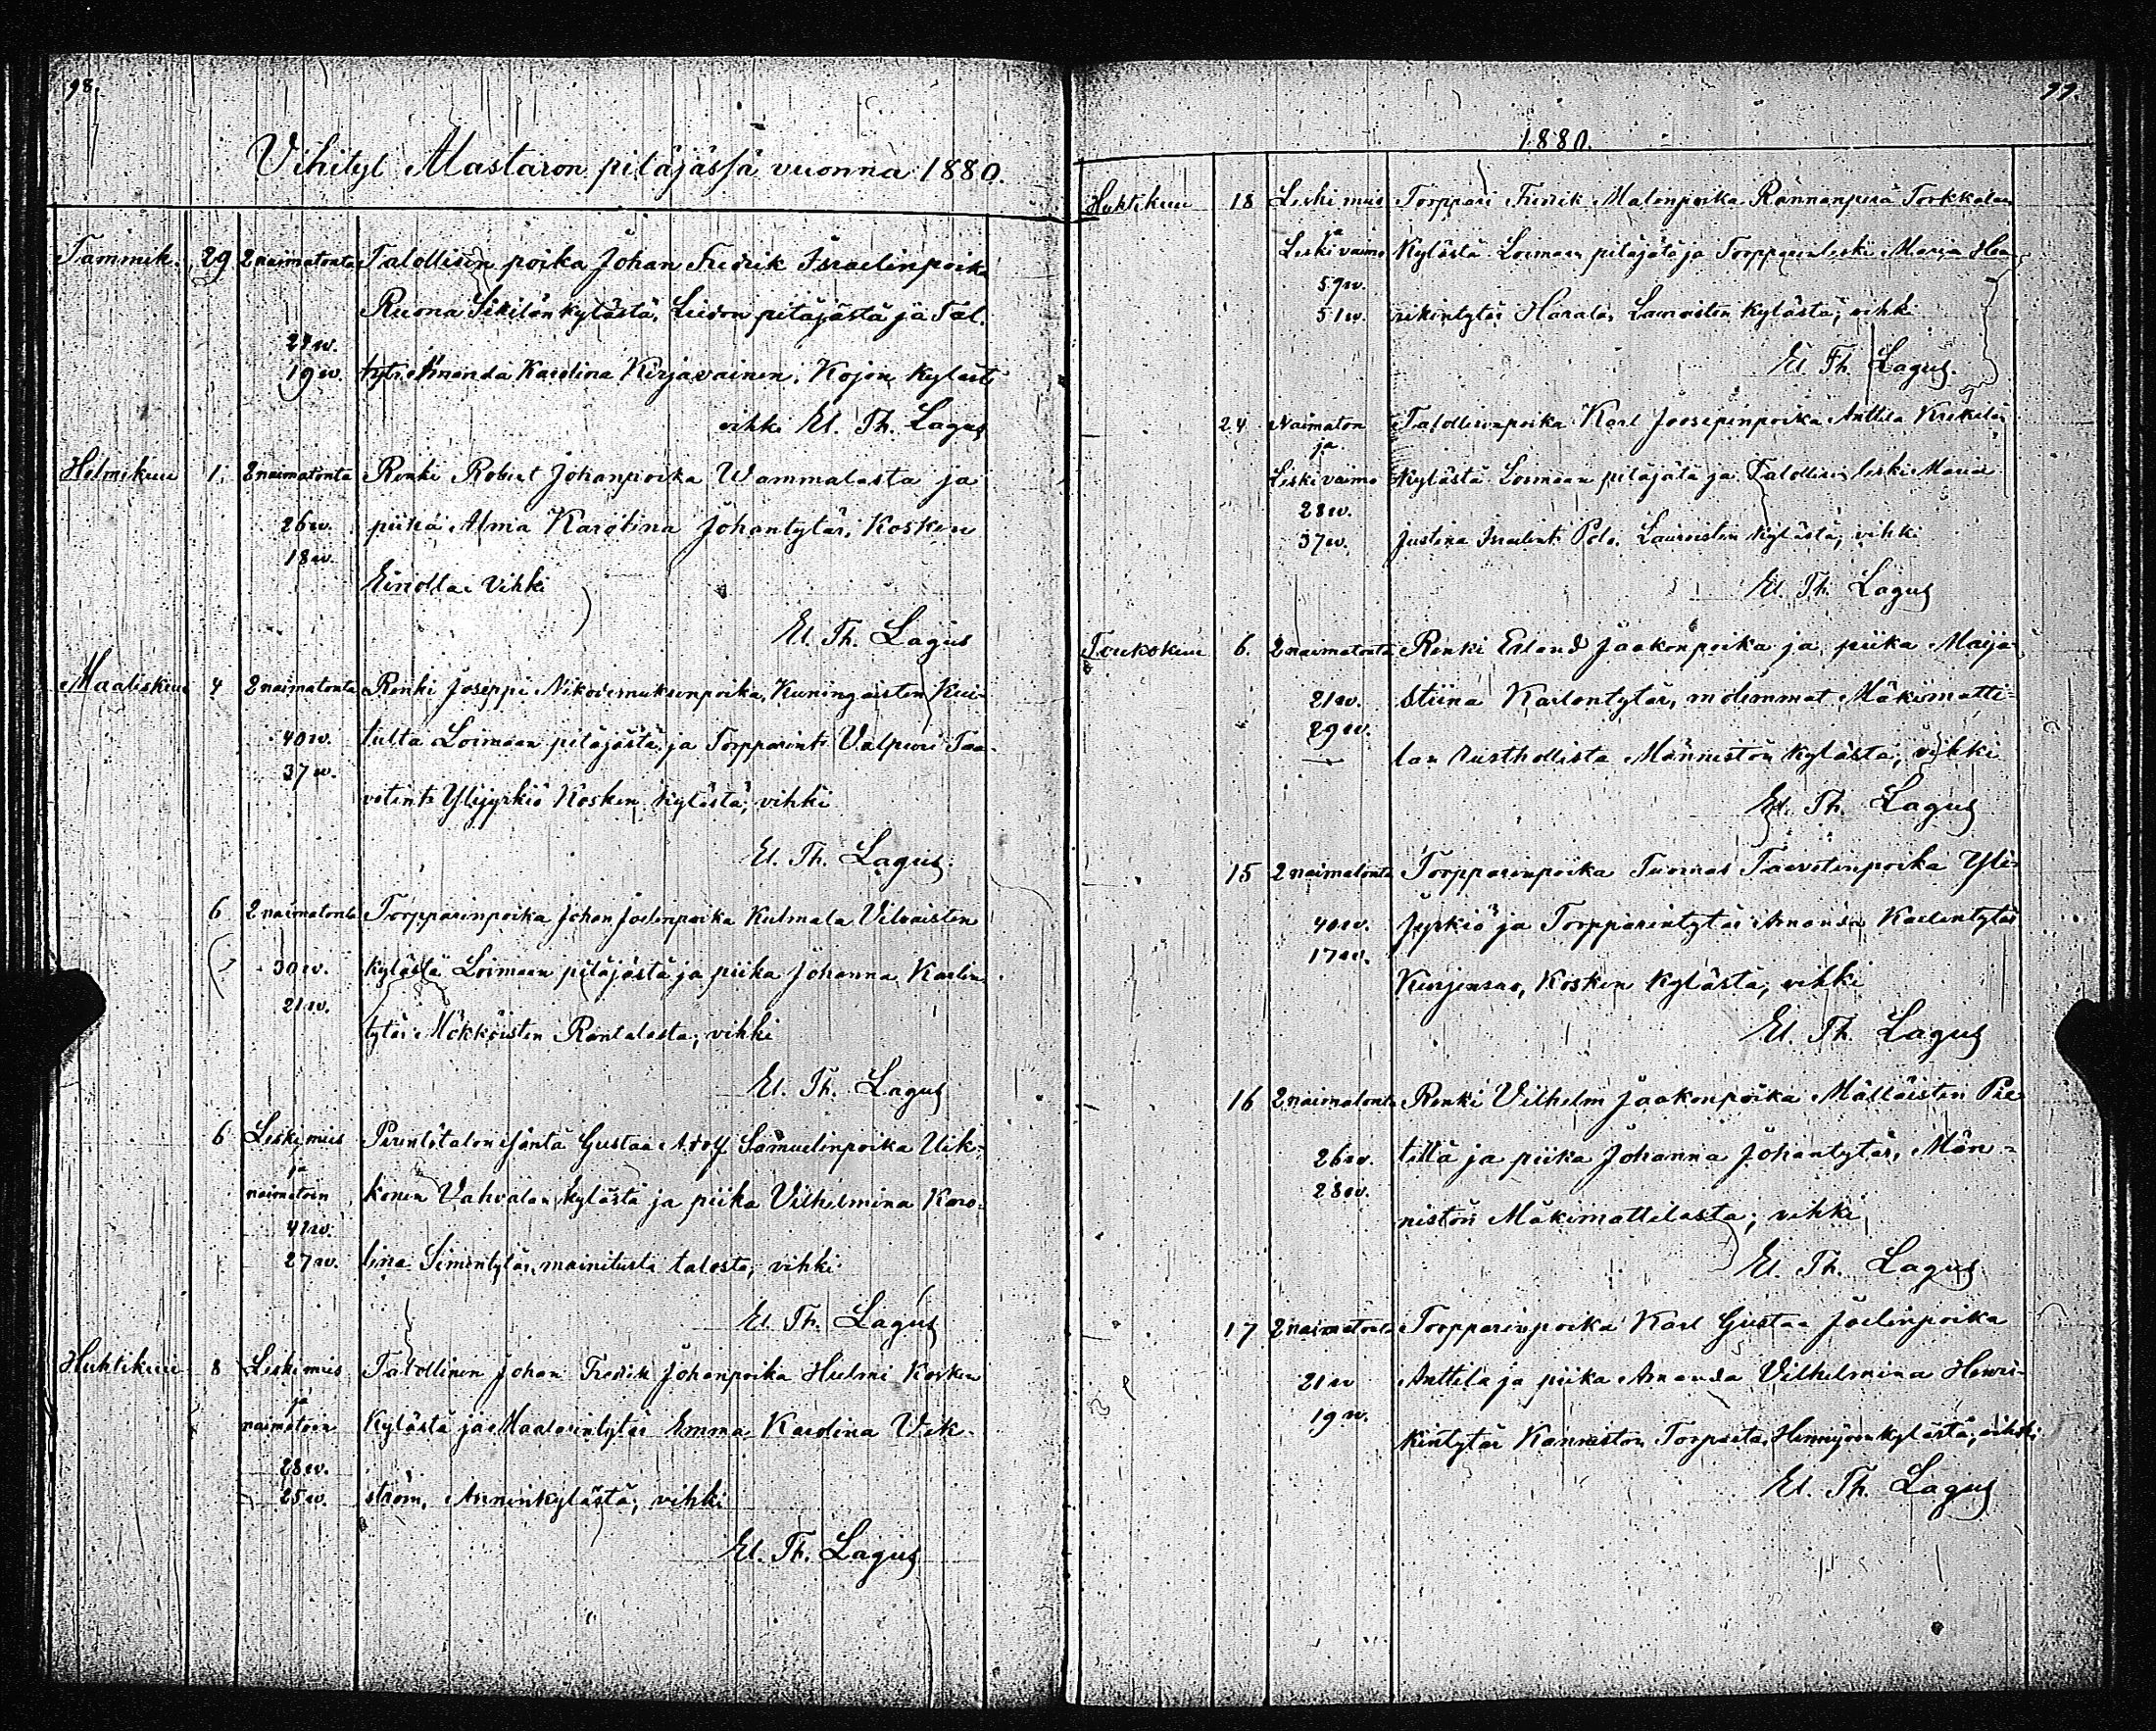 98.
Vihityt Mastaron pitäjässä vuonna 1880.
Tammik. 29 2 naimatonta Talollisen poika Johan Fredrik Israelinpoika
Ruona Sikilän kylästä, Liedon pitäjästä ja Tal.
19 w. tytr. Amanda Karolina Kirjavainen, Kojon kylästä
vihki El. Th. Lagus
Helmikuu 1. 2 naimatonta Renki Robert Johanpoika Wammalasta ja
26 w. piika Alma Karolina Johantytär, Kosken
18 w.
Einolla vihki
El. Th. Lagus
Maaliskuu 4 2 naimatonta Renki Joseppi Nikodemuksenpoika, Kuningaisten Kui-
40 w. lulta Loimaan pitäjästä ja Torpparint. Valpuri Taa-
37 w.
vetint. Ylijyrkiö Kosken kylästä, vihki
El. Th. Lagus
6 2 naimatonta Torpparinpoika Johan Joelinpoika Kulmala Vilvaisten
30 w. kylästä Loimaan pitäjästä ja piika Johanna Karlin-
21 w.
tytär Mökköisten Rantalasta, vihki
El. Th. Lagus
6 Leski mies Perintötalon isäntä Gustaa Adolf Samuelinpoika Uik-
ja
naimatoin konen Vahvalan kylästä ja piika Vilhelmina Karo-
41 w.
27 w. lina Simontytär, mainitusta talosta, vihki
El. Th. Lagus
Huhtikuu 8 Leski mies Talollinen Johan Fredik Johanpoika Hulmi Kosken
ja
naimatoin kylästä ja Maalarintytär Emma Karolina Vek-
28 w.
25 w. ström, Anninkylästä, vihki
El. Th. Lagus
99.
1880.
Huhtikuu 18 Leski mies Torppari Fredrik Matinpoika Rannanperä Torkkalan
ja
Leski vaimo kylästä Loimaan pitäjätä ja Torpparinleski Maria Hen-
59 w.
51 w. rikintytär Harala, Lauroisten kylästä, vihki
El. Th. Lagus.
24 Naimaton Talollisenpoika Karl Joosepinpoika Anttila Krekilän
ja
Leski vaimo kylästä Loimaan pitäjätä ja Talollisen leski Maria
28 w.
37 w. Justina Israelint. Polo, Lauroisten kylästä, vihki
El. Th. Lagus
Toukokuu 6. 2 naimatonta Renki Erland Jaakonpoika ja piika Maija
21 w. Stiina Karlontytär, molemmat Mäkimatti-
29 w.
lan Rusthollista Männistön kylästä, vihki
El. Th. Lagus
15 2 naimatonta Torpparinpoika Tuomas Taavetinpoika Yli-
40 w. jyrkiö ja Torpparintytär Amanda Karlintytär
17 w.
Kurjensuo, Kosken kylästä, vihki
El. Th. Lagus
16 2 naimatonta Renki Vilhelm Jaakonpoika Mälläisten Pie-
26 w. tillä ja piika Johanna Johantytär, Män-
28 w.
nistön Mäkimattilasta, vihki
El. Th. Lagus
17 2 naimatonta Torpparinpoika Karl Gustaa Joelinpoika
21 w Anttila ja piika Amanda Vilhelmina Henri-
19 w.
kintytär Kanniston Torpasta, Hennijoenkylästä, vihki
El. Th. Lagus